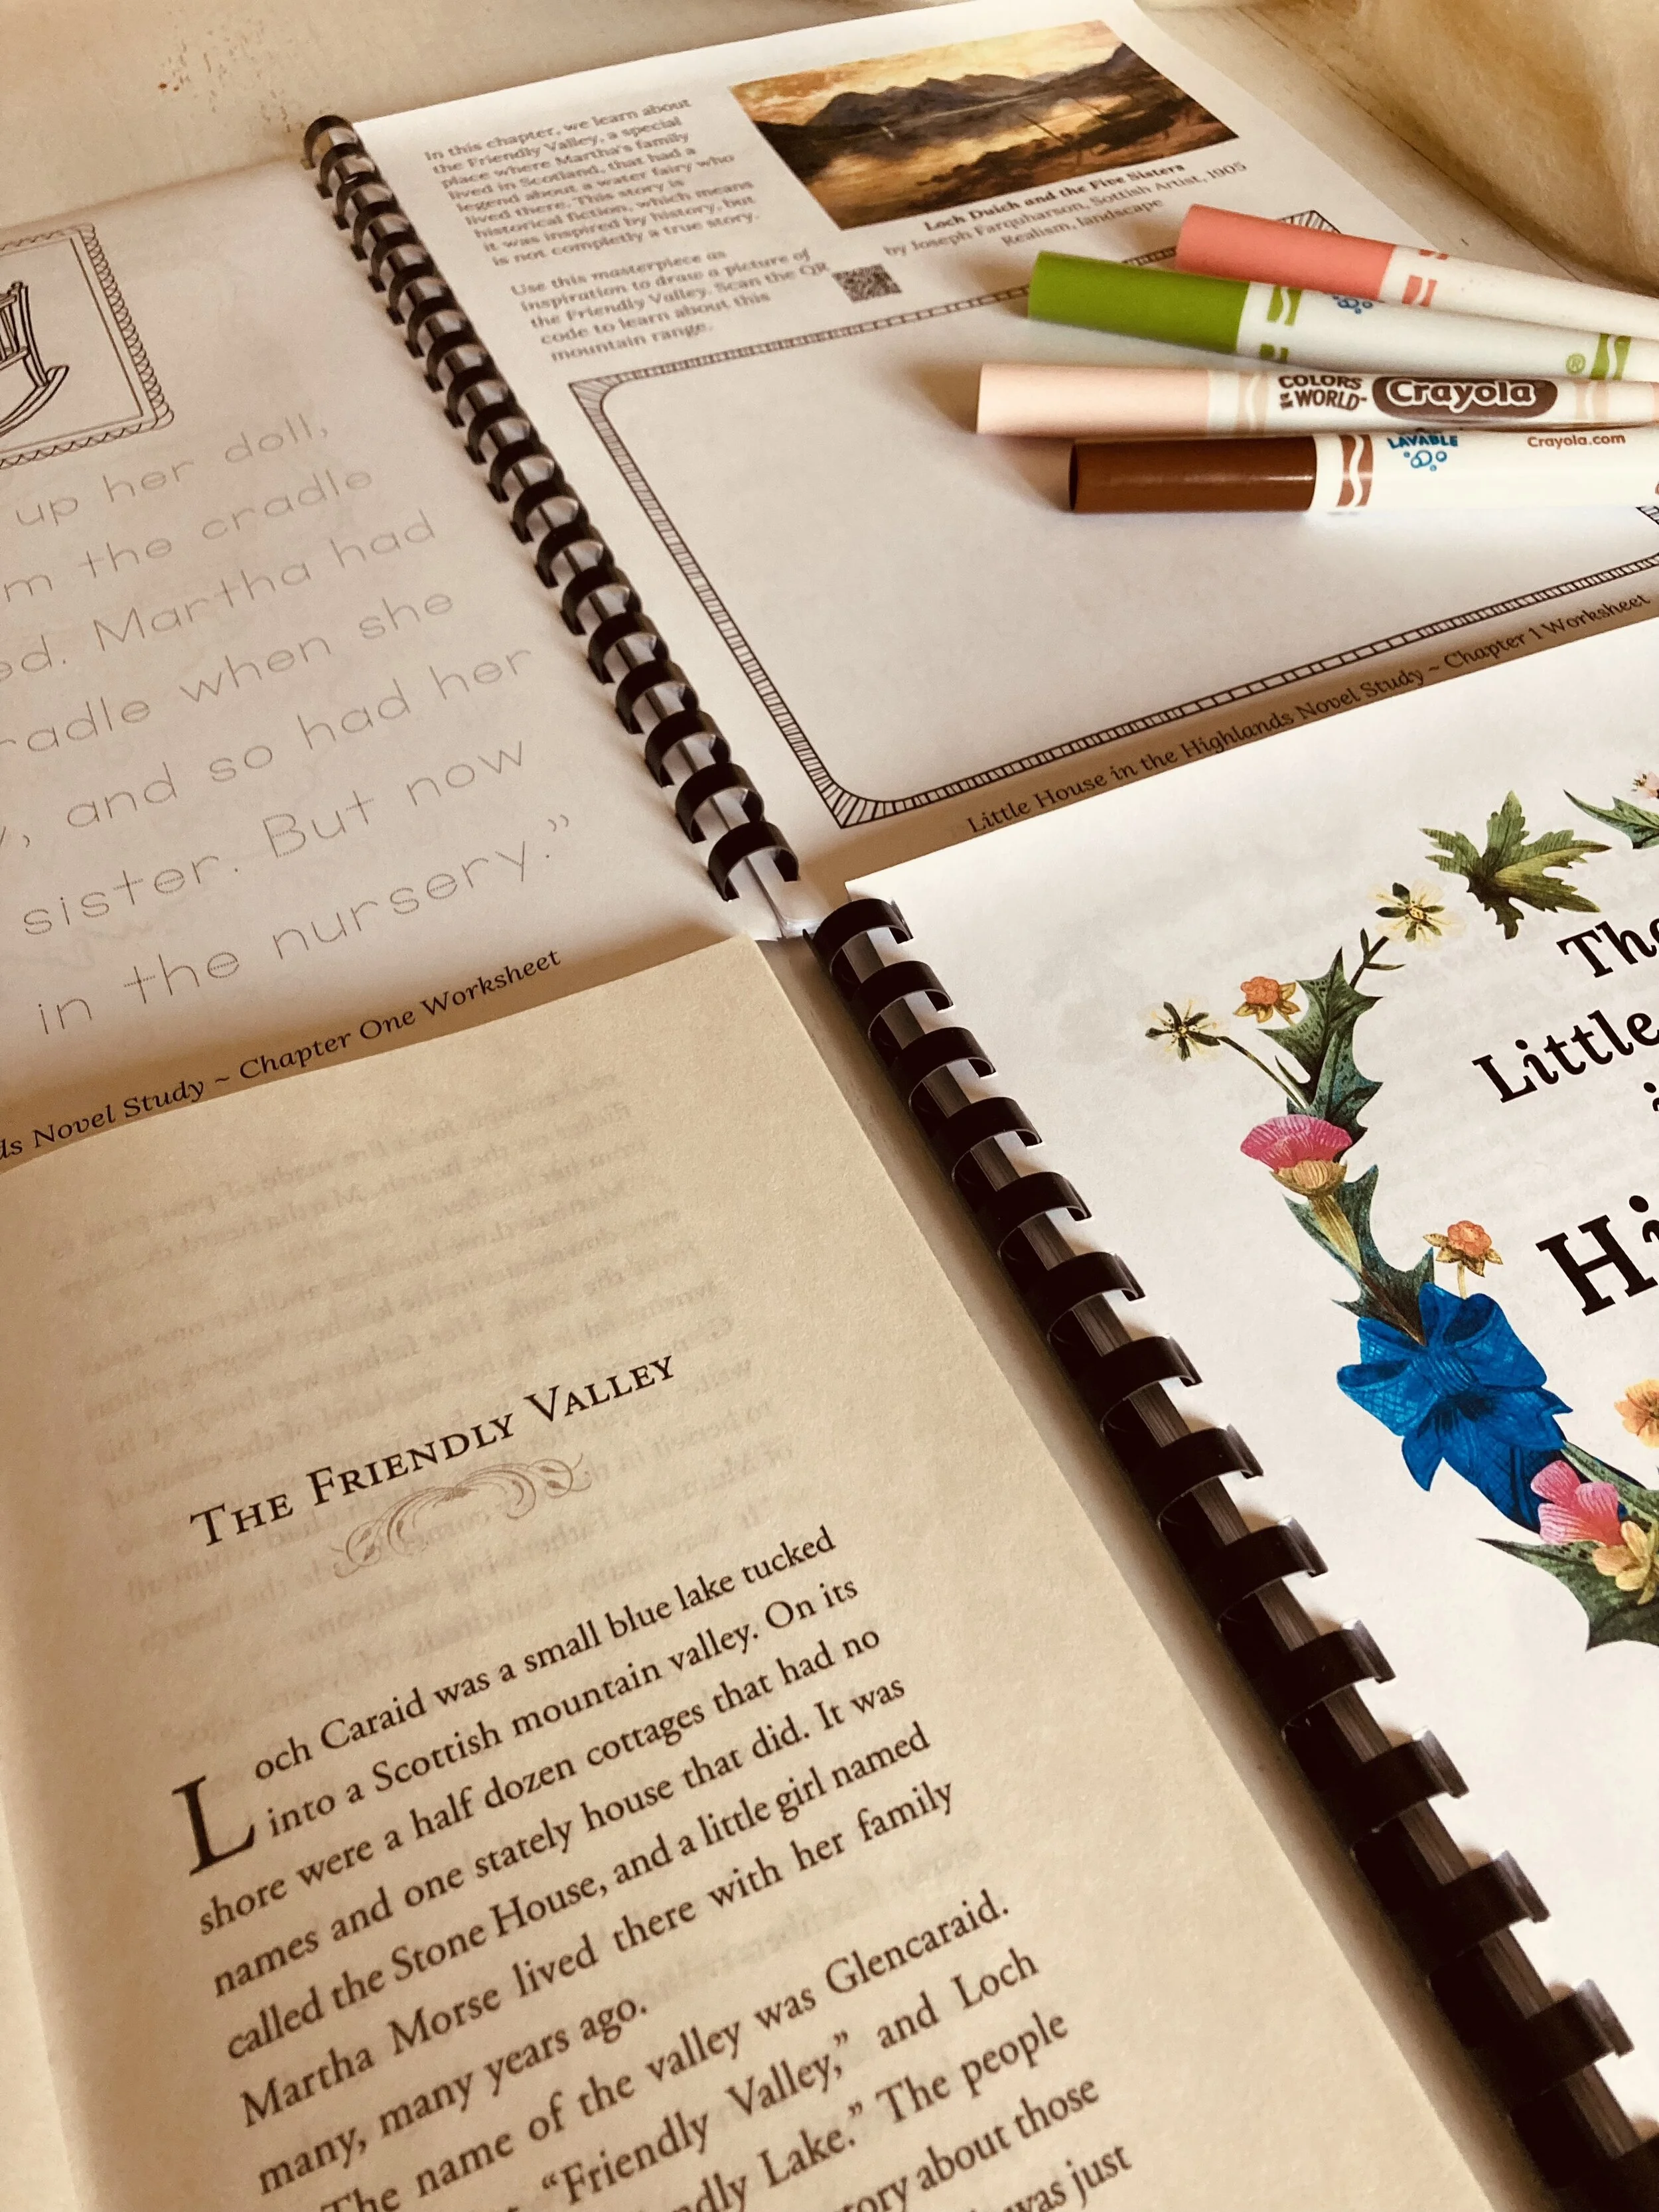 In this chapter, we learn about
the Friendly Valley, a special
place where Martha's family
lived in Scotland, that had a
legend about a water fairy who
lived there. This story is
historical fiction, which means
it was inspired by history, but
is not completly a true story.
Use this masterpiece as
inspiration to draw a picture of
the Friendly Valley. Scan the QR
code to learn about this
mountain range.
Loch Duich and the Five Sisters
by Joseph Farquharson, Sottish Artist, 1905
Realism, landscape
COLORS OF THE WORLD Crayola
Crayola.com
Little House in the Highlands Novel Study ~ Chapter 1 Worksheet
up her doll,
m the cradle
ed. Martha had
radle when she
, and so had her
sister. But now
in the nursery.”
ds Novel Study ~ Chapter One Worksheet
The
Little
Hi
THE FRIENDLY VALLEY
Loch Caraid was a small blue lake tucked
into a Scottish mountain valley. On its
shore were a half dozen cottages that had no
names and one stately house that did. It was
called the Stone House, and a little girl named
Martha Morse lived there with her family
many, many years ago.
The name of the valley was Glencaraid.
“Friendly Valley,” and Loch
ndly Lake.” The people
ory about those
was just